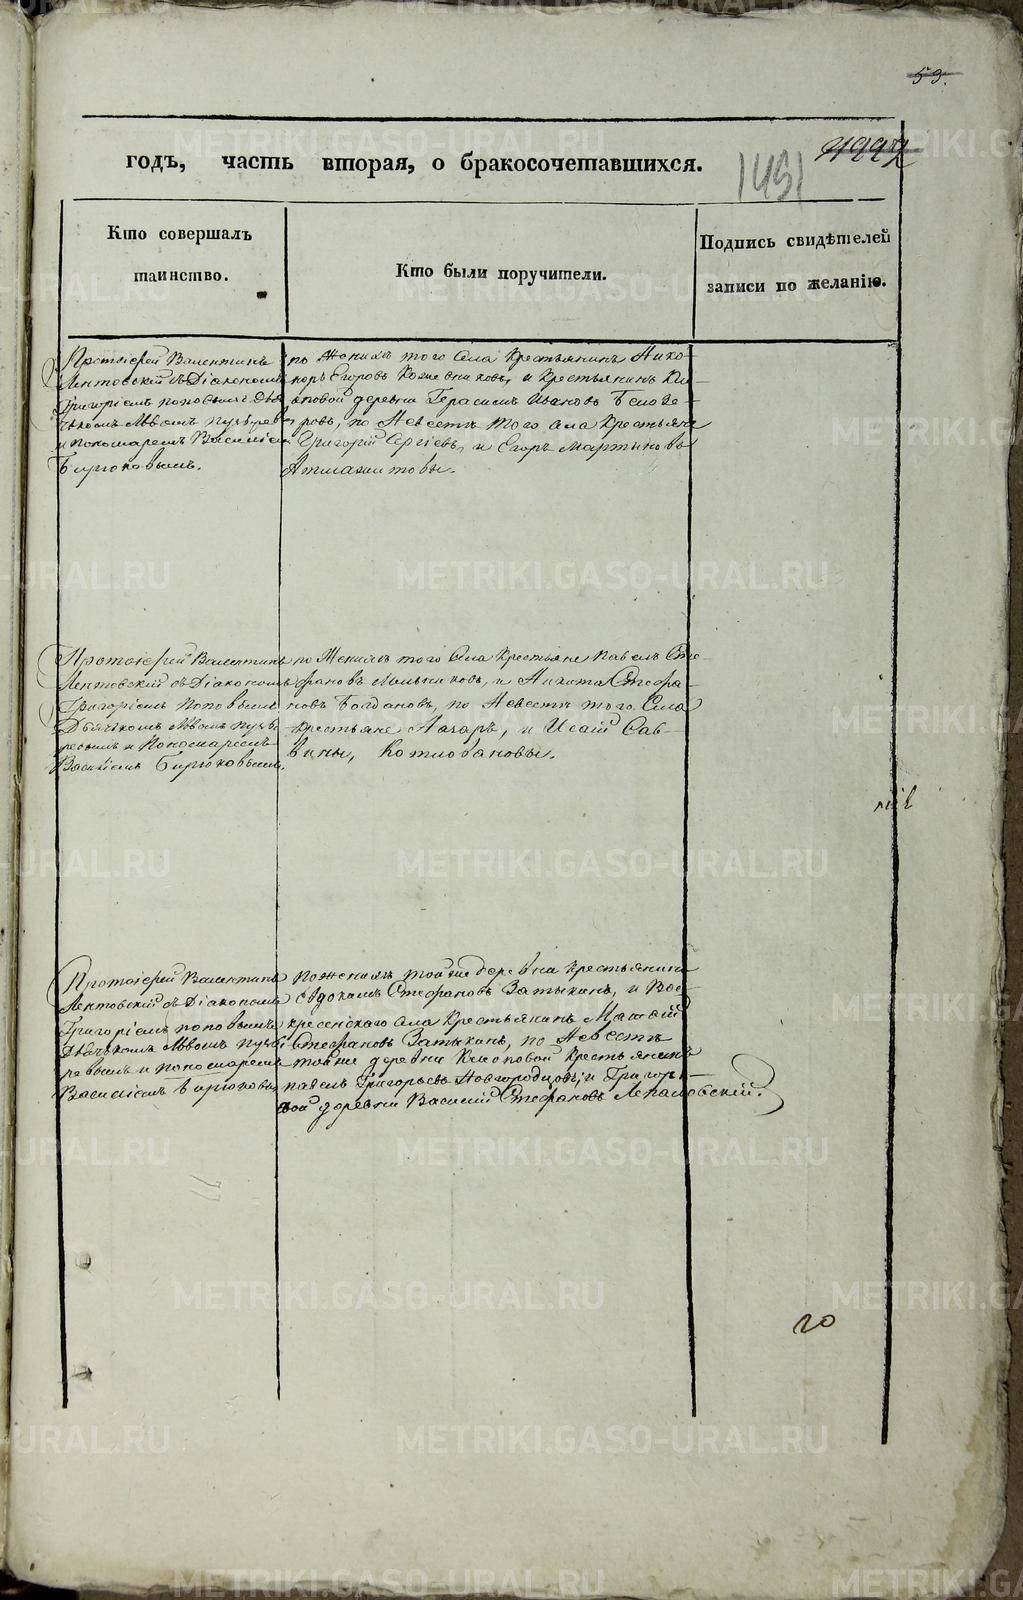 53.
годъ, часть вторая, о бракосочетавшихся.
1451
Кто совершалъ
таинство.
Кто были поручители.
Подпись свидѣтелей
записи по желанію.
Протоіерей Валентинъ
Лептовскій съ Діакономъ
Григоріемъ Поповымъ
Львомъ
и пономаремъ Василіем
Бирюковымъ.
по Женихѣ того Села Крестьянинъ Ника-
норъ Егоровъ Кожевниковъ, и Крестьянинъ Кли-
новой деревни Герасимъ Ивановъ Белозе-
ровъ, по Невестѣ того Села Крестьяне
Григорій Сергіевъ, и Егоръ Мартыновъ
Протоіерей Валентинъ
Лептовскій съ Діакономъ
Григоріемъ Поповымъ
Дьячкомъ Львомъ
и Пономаремъ
Василіемъ Бирюковымъ.
по Женихѣ того Села Крестьяне Павелъ Сте-
фановъ Мыльниковъ, и Никита Стефа-
новъ Богдановъ, по Невестѣ того Села
Крестьяне Назаръ, и Исаій Сав-
вины, Котловановы.
Протоіерей Валентинъ
Лептовскій съ Діакономъ
Григоріемъ Поповымъ
Дьячкомъ Львомъ
и пономаремъ
Василіемъ Бирюковым
по женихѣ той же деревни Крестьянинъ
Евдокимъ Стефановъ Затыкинъ, и Вос-
кресенскаго Села Крестьянинъ
Стефановъ Затыкинъ, по Невестѣ
той же деревни Клюповой Крестьянинъ
Павелъ Григорьевъ Новгородцовъ, и Григорь-
вой деревни Василій Стефановъ
20
METRIKI.GASO-URAL.RU